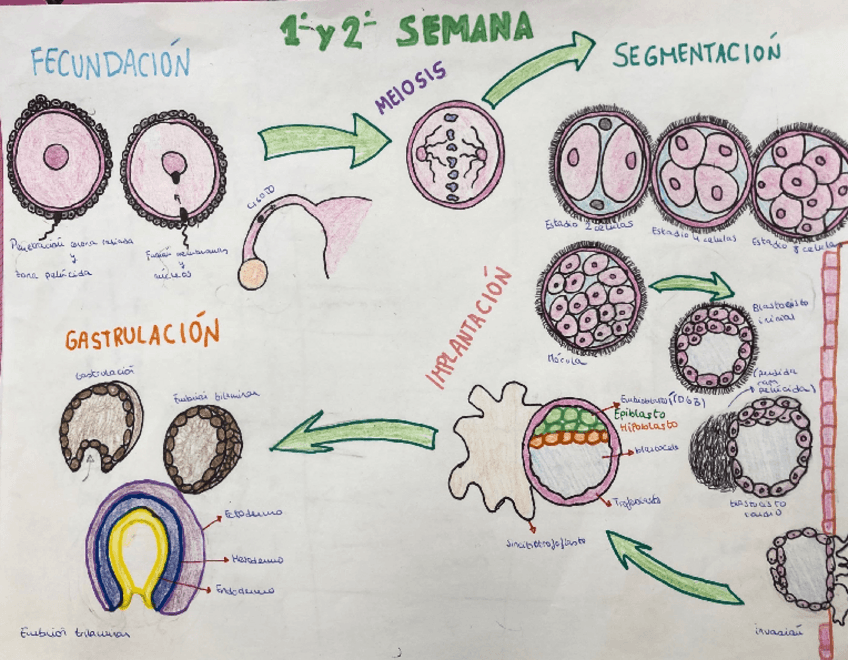 1ª y 2ª SEMANA
FECUNDACIÓN
Penetración corona radiada
y
zona pelúcida
Fusión membranas
y
núcleos
MEIOSIS
CIGOTO
SEGMENTACIÓN
Estadio 2 células
Estadio 4 células
Estadio 8 células
Mórula
Blastocisto
inicial
(perdida
capa
pelúcida)
blastocisto
tardío
invasión
IMPLANTACIÓN
Embrioblasto
Epiblasto
Hipoblasto
blastocele
Trofoblasto
Sincitiotrofoblasto
GASTRULACIÓN
Gastrulación
Embrión bilaminar
Ectodermo
Mesodermo
Endodermo
Embrión bilaminar